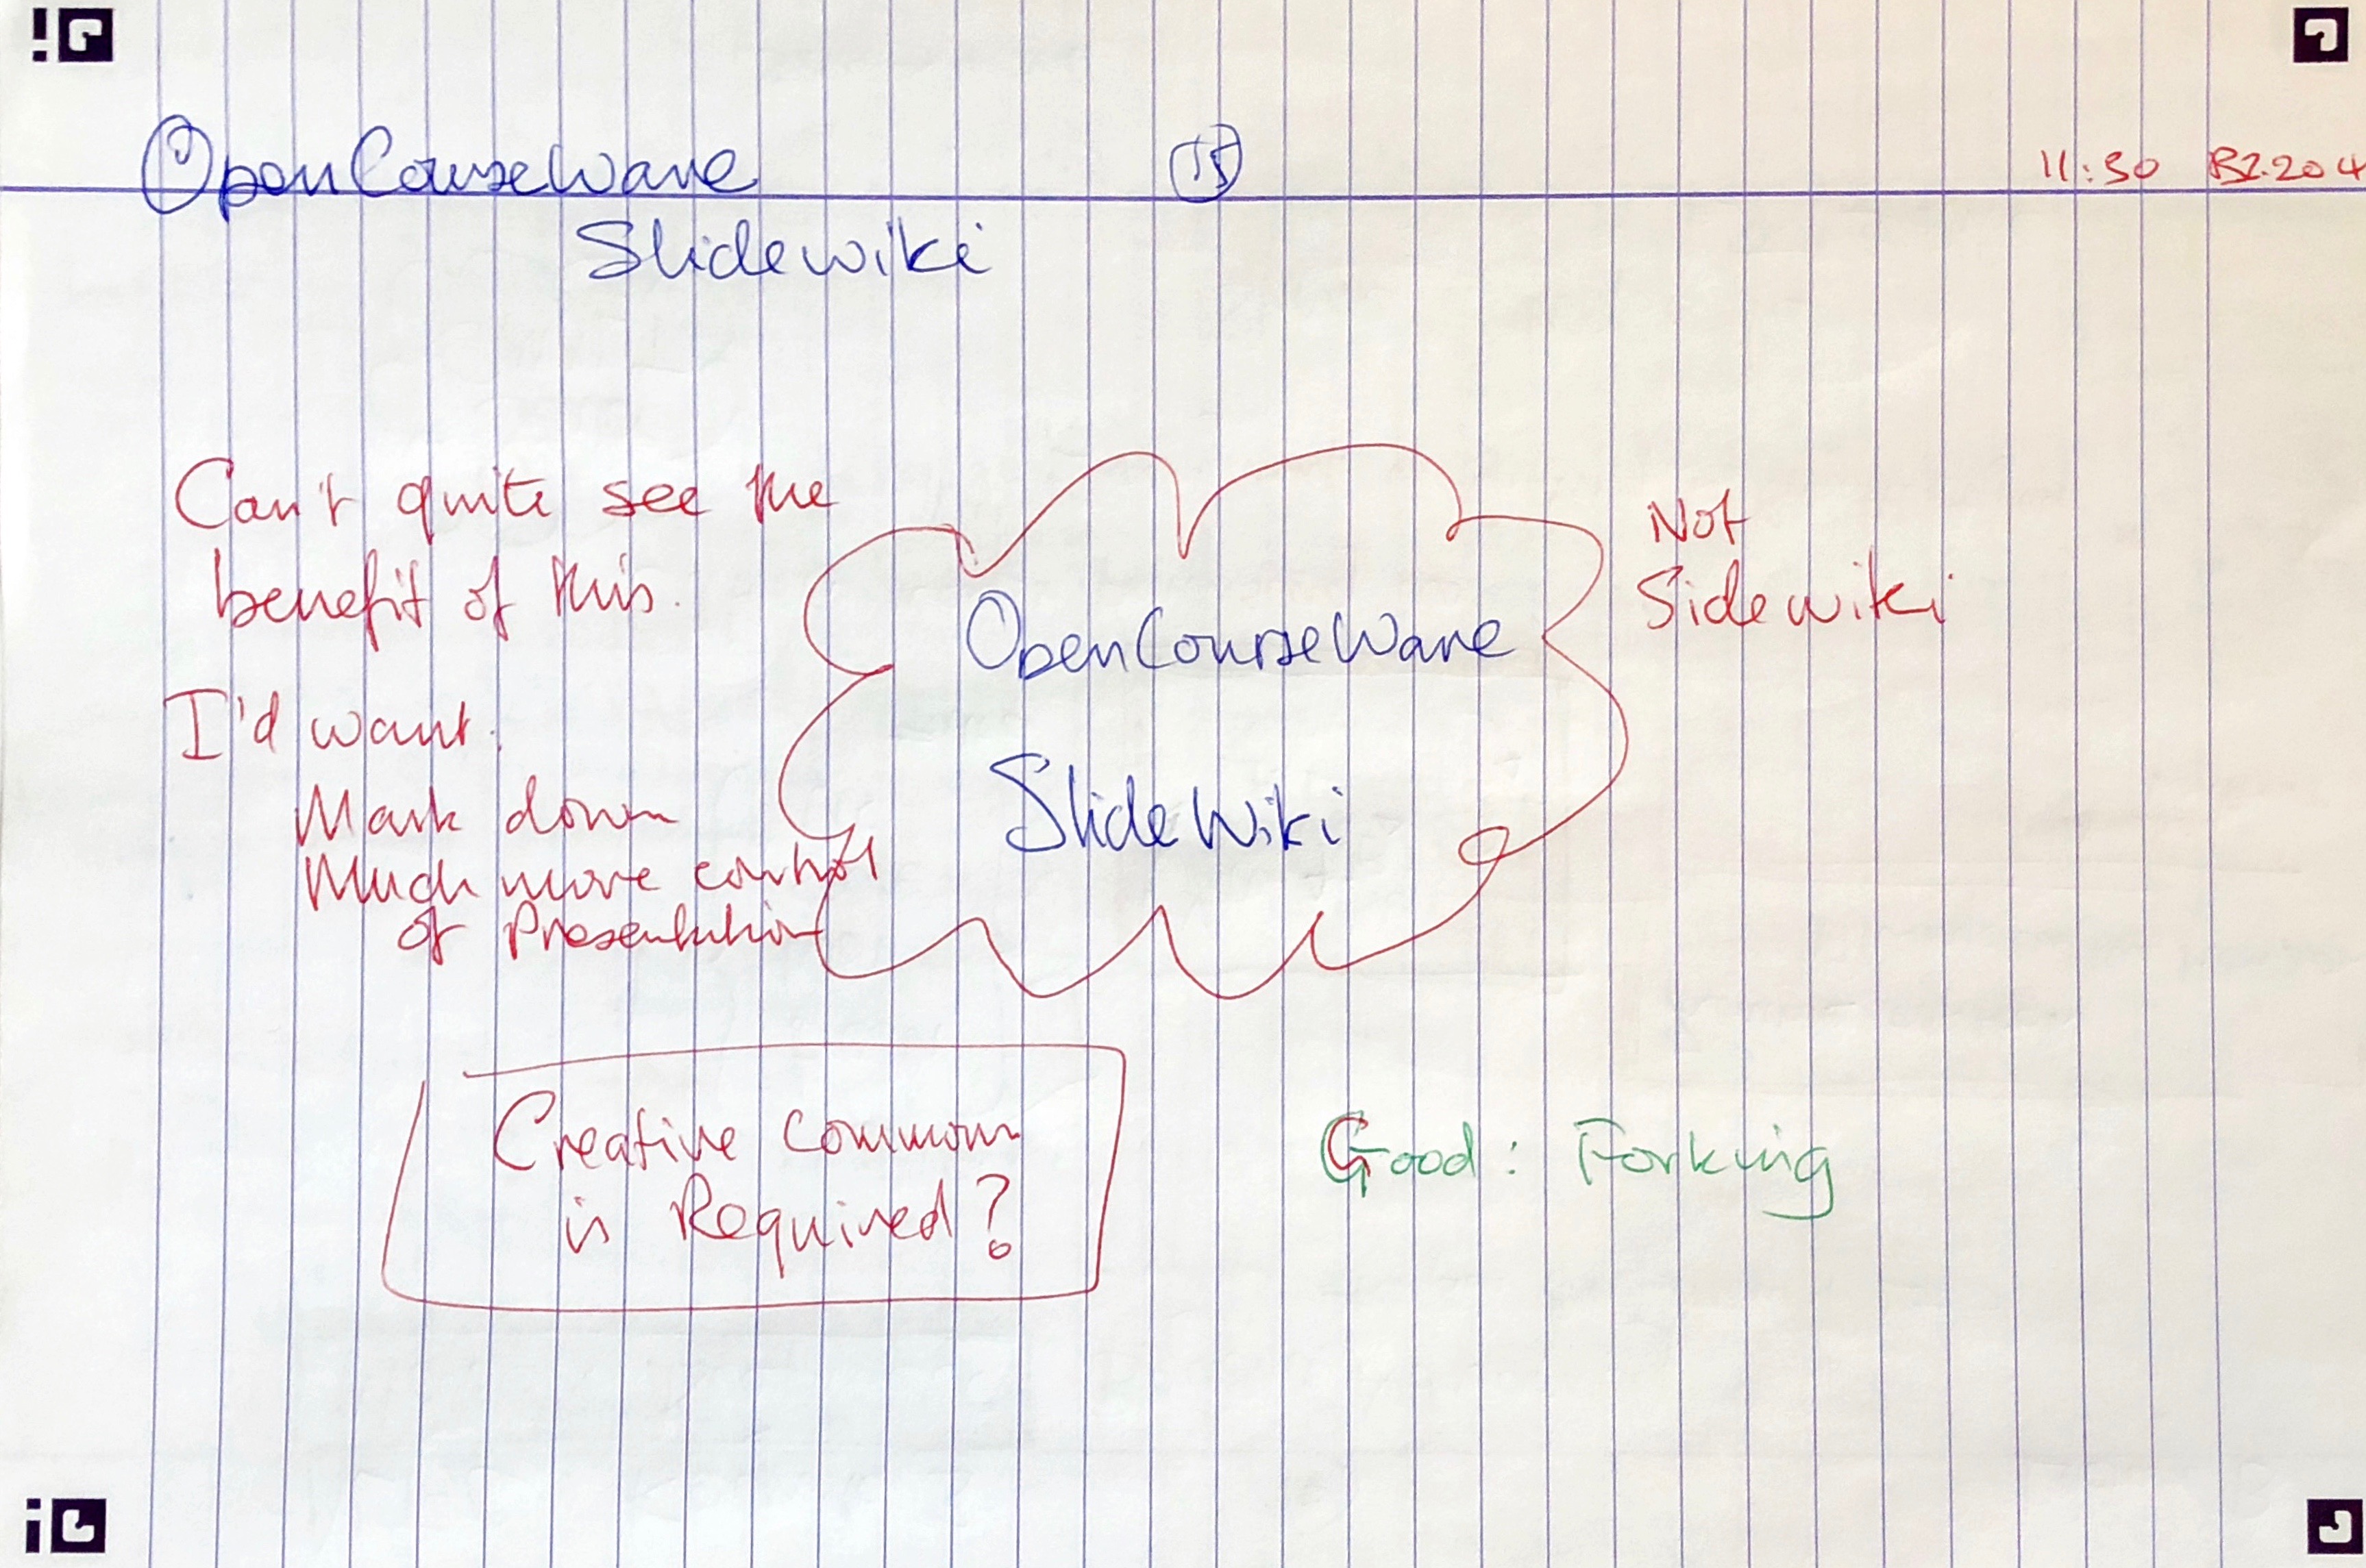 OpenCourseWare
15
11:30 B2.204
Slidewiki
Can't quite see the
benefit of this.
I'd want:
Mark down
Much more control
of Presentation
OpenCourseWare
SlideWiki
Not
Sidewiki
Creative Common
is Required?
Good: Forking